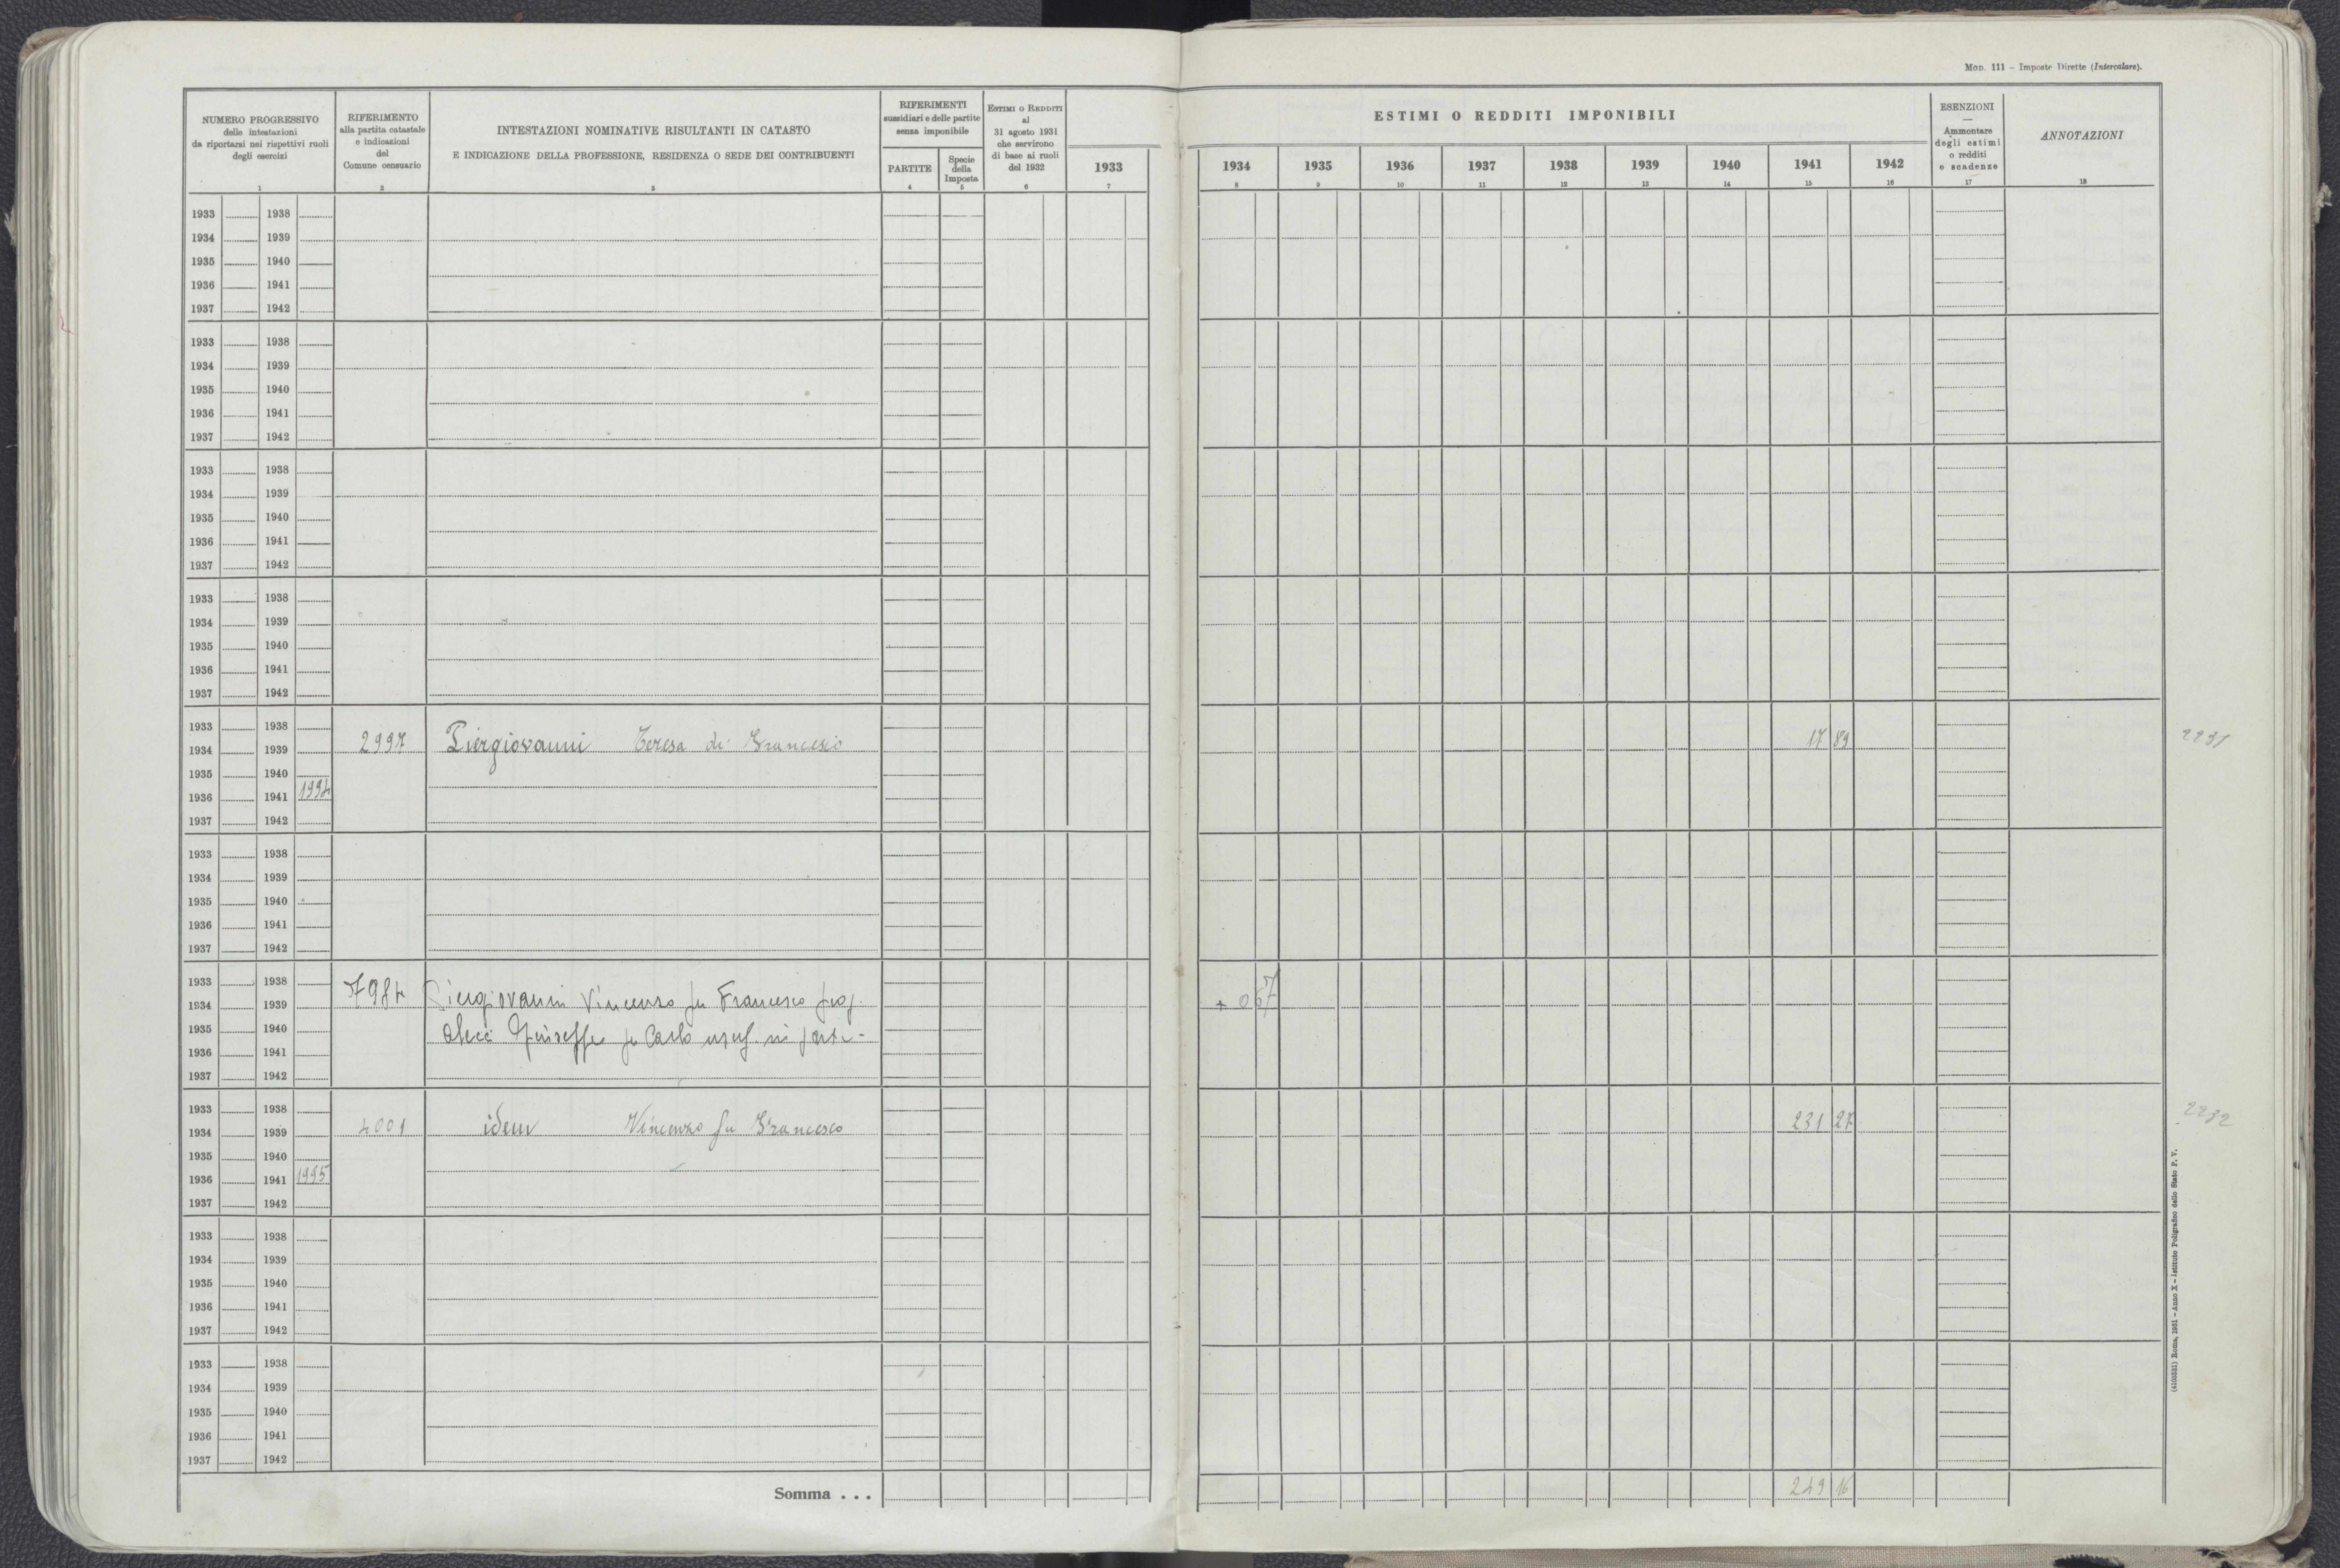 Mod. 111 – Imposte Dirette (Intercalare).
NUMERO PROGRESSIVO
delle intestazioni
da riportarsi nei rispettivi ruoli
degli esercizi
1
RIFERIMENTO
alla partita catastale
e indicazioni
del
Comune censuario
2
INTESTAZIONI NOMINATIVE RISULTANTI IN CATASTO
E INDICAZIONE DELLA PROFESSIONE, RESIDENZA O SEDE DEI CONTRIBUENTI
3
RIFERIMENTI
sussidiari e delle partite
senza imponibile
PARTITE
4
Specie
della
Imposta
5
Estimi o Redditi
al
31 agosto 1931
che servirono
di base ai ruoli
del 1932
6
1933
7
ESTIMI O REDDITI IMPONIBILI
1934 1935 1936 1937 1938 1939 1940 1941 1942
8 9 10 11 12 13 14 15 16
ESENZIONI
—
Ammontare
degli estimi
o redditi
e scadenze
17
ANNOTAZIONI
18
1933 1938
1934 1939
1935 1940
1936 1941
1937 1942
1933 1938
1934 1939
1935 1940
1936 1941
1937 1942
1933 1938
1934 1939
1935 1940
1936 1941
1937 1942
1933 1938
1934 1939
1935 1940
1936 1941
1937 1942
1933 1938
1934 1939 2997 Piergiovanni Teresa di Francesco 17 89 2231
1935 1940
1936 1941 1994
1937 1942
1933 1938
1934 1939
1935 1940
1936 1941
1937 1942
1933 1938
1934 1939 Piergiovanni Vincenzo fu Francesco prop.
1935 1940 Giuseppe fu Carlo usuf. in parte -
1936 1941
1937 1942
1933 1938
1934 1939 4001 idem Vincenzo fu Francesco 231 27 2232
1935 1940
1936 1941 1995
1937 1942
1933 1938
1934 1939
1935 1940
1936 1941
1937 1942
1933 1938
1934 1939
1935 1940
1936 1941
1937 1942
Somma . . . 249 16
(4103331) Roma, 1931 – Anno X – Istituto Poligrafico dello Stato P. V.